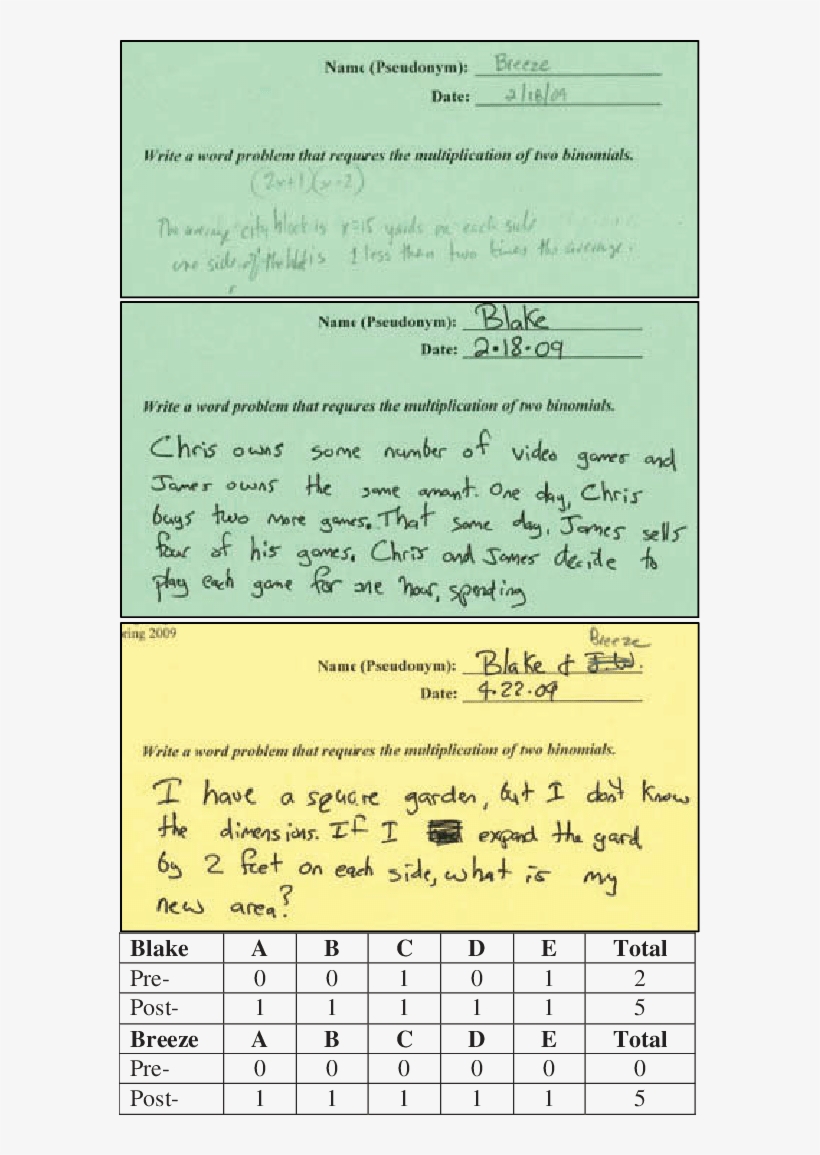 Name (Pseudonym): Breeze
Date: 2/18/09
Write a word problem that requires the multiplication of two binomials.
(2x+1)(x-2)
The average city block is x=15 yards on each side
one side of the is 1 less than two times the average.
Name (Pseudonym): Blake
Date: 2-18-09
Write a word problem that requires the multiplication of two binomials.
Chris owns some number of video games and
James owns the same amant. One day, Chris
buys two more games. That same day, James sells
four of his games. Chris and James decide to
play each game for one hour, spending
ring 2009
Breeze
Name (Pseudonym): Blake &
Date: 4-22-09
Write a word problem that requires the multiplication of two binomials.
I have a square garden, but I don't know
the dimensions. If I expand the yard
by 2 feet on each side, what is my
new area?
Blake A B C D E Total
Pre- 0 0 1 0 1 2
Post- 1 1 1 1 1 5
Breeze A B C D E Total
Pre- 0 0 0 0 0 0
Post- 1 1 1 1 1 5